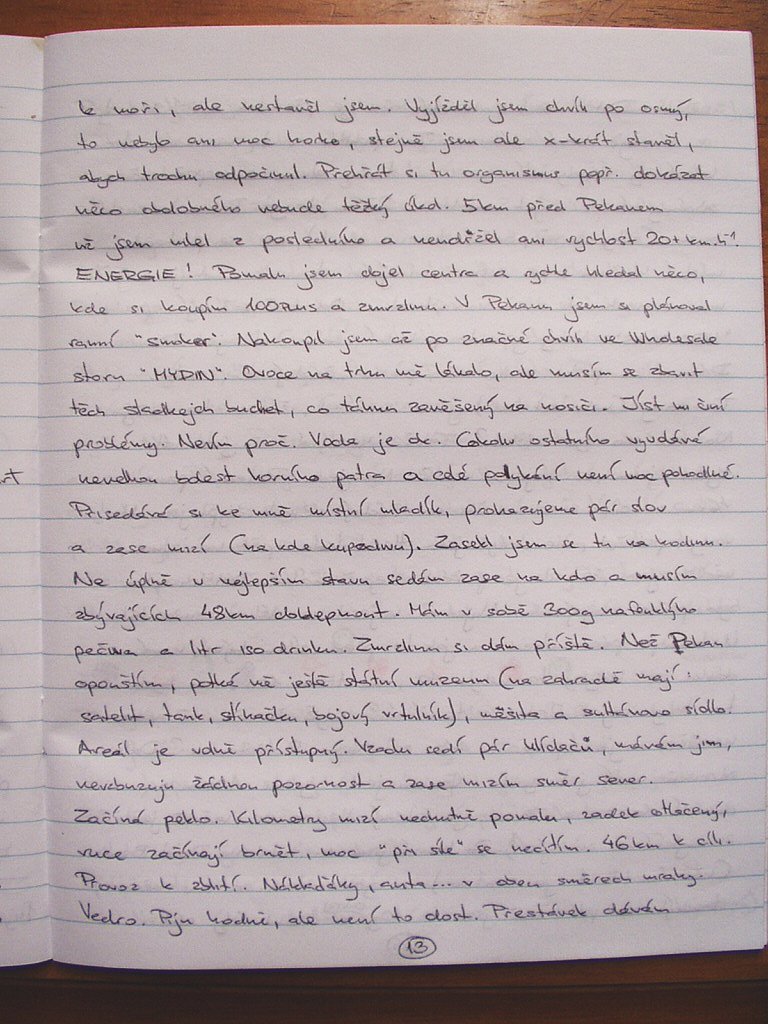 k moři, ale nestavěl jsem. Vyjížděl jsem chvíli po osmý,
to nebylo ani moc horko, stejně jsem ale x-krát stavěl,
abych trochu odpočinul. Přehřát si tu organismus popř. dokázat
něco obdobného nebude těžký úkol. 5km před Pekanem
už jsem mlel z posledního a neudržel ani rychlost 20+ km.h⁻¹.
ENERGIE! Pomalu jsem dojel centra a rychle hledal něco,
kde si koupím 100PLUS a zmrzlinu. V Pekanu jsem si plánoval
ranní "smoker". Nakoupil jsem až po značné chvíli ve Wholesale
storu "MYDIN". Ovoce na trhu mě lákalo, ale musím se zbavit
těch sladkejch buchet, co táhnu zavěšený na nosiči. Jíst mi činí
problémy. Nevím proč. Voda je ok. Cokoliv ostatního vyvolává
nevelkou bolest horního patra a celé polykání není moc pohodlné.
rt
Přisedává si ke mně místní mladík, prohazujeme pár slov
a zase mizí (na kole kupodivu). Zasekl jsem se tu na hodinu.
Ne úplně v nejlepším stavu sedám zase na kolo a musím
zbývajících 48km došlapnout. Mám v sobě 300g nafouklýho
pečiva a litr iso drinku. Zmrzlinu si dám příště. Než Pekan
opouštím, potká mě ještě státní muzeum (na zahradě mají:
satelit, tank, stíhačku, bojový vrtulník), mešita a sultánovo sídlo.
Areál je volně přístupný. Vzadu sedí pár hlídačů, mávám jim,
nevzbuzuju žádnou pozornost a zase mizím směr sever.
Začíná peklo. Kilometry mizí nechutně pomalu, zadek otlačený,
ruce začínají brnět, moc "při síle" se necítím. 46km k cíli.
Provoz k zblití. Náklaďáky, auta... v obou směrech mraky.
Vedro. Piju hodně, ale není to dost. Přestávek dávám
13